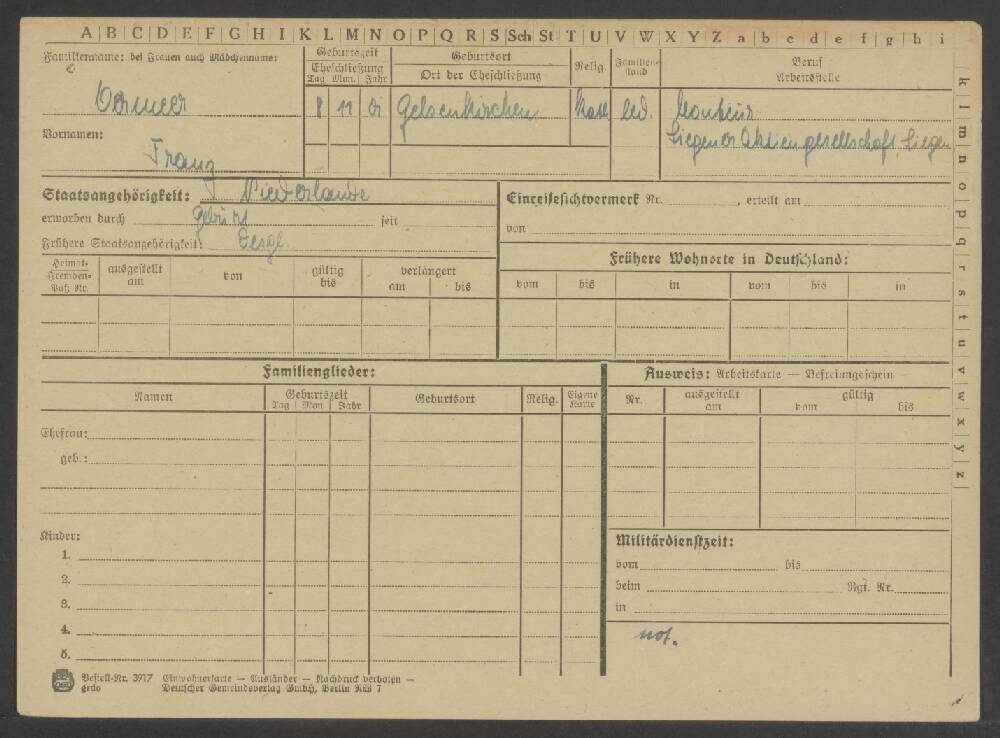 A B C D E F G H I K L M N O P Q R S Sch St T U V W X Y Z a b c d e f g h i
k l m n o p q r s t u v w x y z
Familienname: bei Frauen auch Mädchenname:
Geburtszeit
Eheschließung
Tag Mon. Jahr
Geburtsort
Ort der Eheschließung
Relig.
Familien-
stand
Beruf
Arbeitsstelle
Vermeer
8 11 01 Gelsenkirchen Kath. led. Monteur
Siegener Aktiengesellschaft, Siegen
Vornamen:
Franz
Staatsangehörigkeit: Niederlande
erworben durch Geburt seit
Frühere Staatsangehörigkeit: Desgl.
Einreisesichtvermerk Nr. , erteilt am
von
Heimat-
Fremden-
Paß Nr.
ausgestellt
am
von
gültig
bis
verlängert
am bis
Frühere Wohnorte in Deutschland:
vom bis in vom bis in
Familienglieder:
Namen
Geburtszeit
Tag Mon. Jahr
Geburtsort
Relig.
Eigene
Karte
Ehefrau:
geb.:
Kinder:
1.
2.
3.
4.
5.
Ausweis: Arbeitskarte — Befreiungsschein
Nr.
ausgestellt
am
gültig
vom bis
Militärdienstzeit:
vom bis
beim Rgt. Nr.
in
not.
Bestell-Nr. 3917 Einwohnerkarte — Ausländer — Nachdruck verboten —
Deutscher Gemeindeverlag GmbH, Berlin NW 7